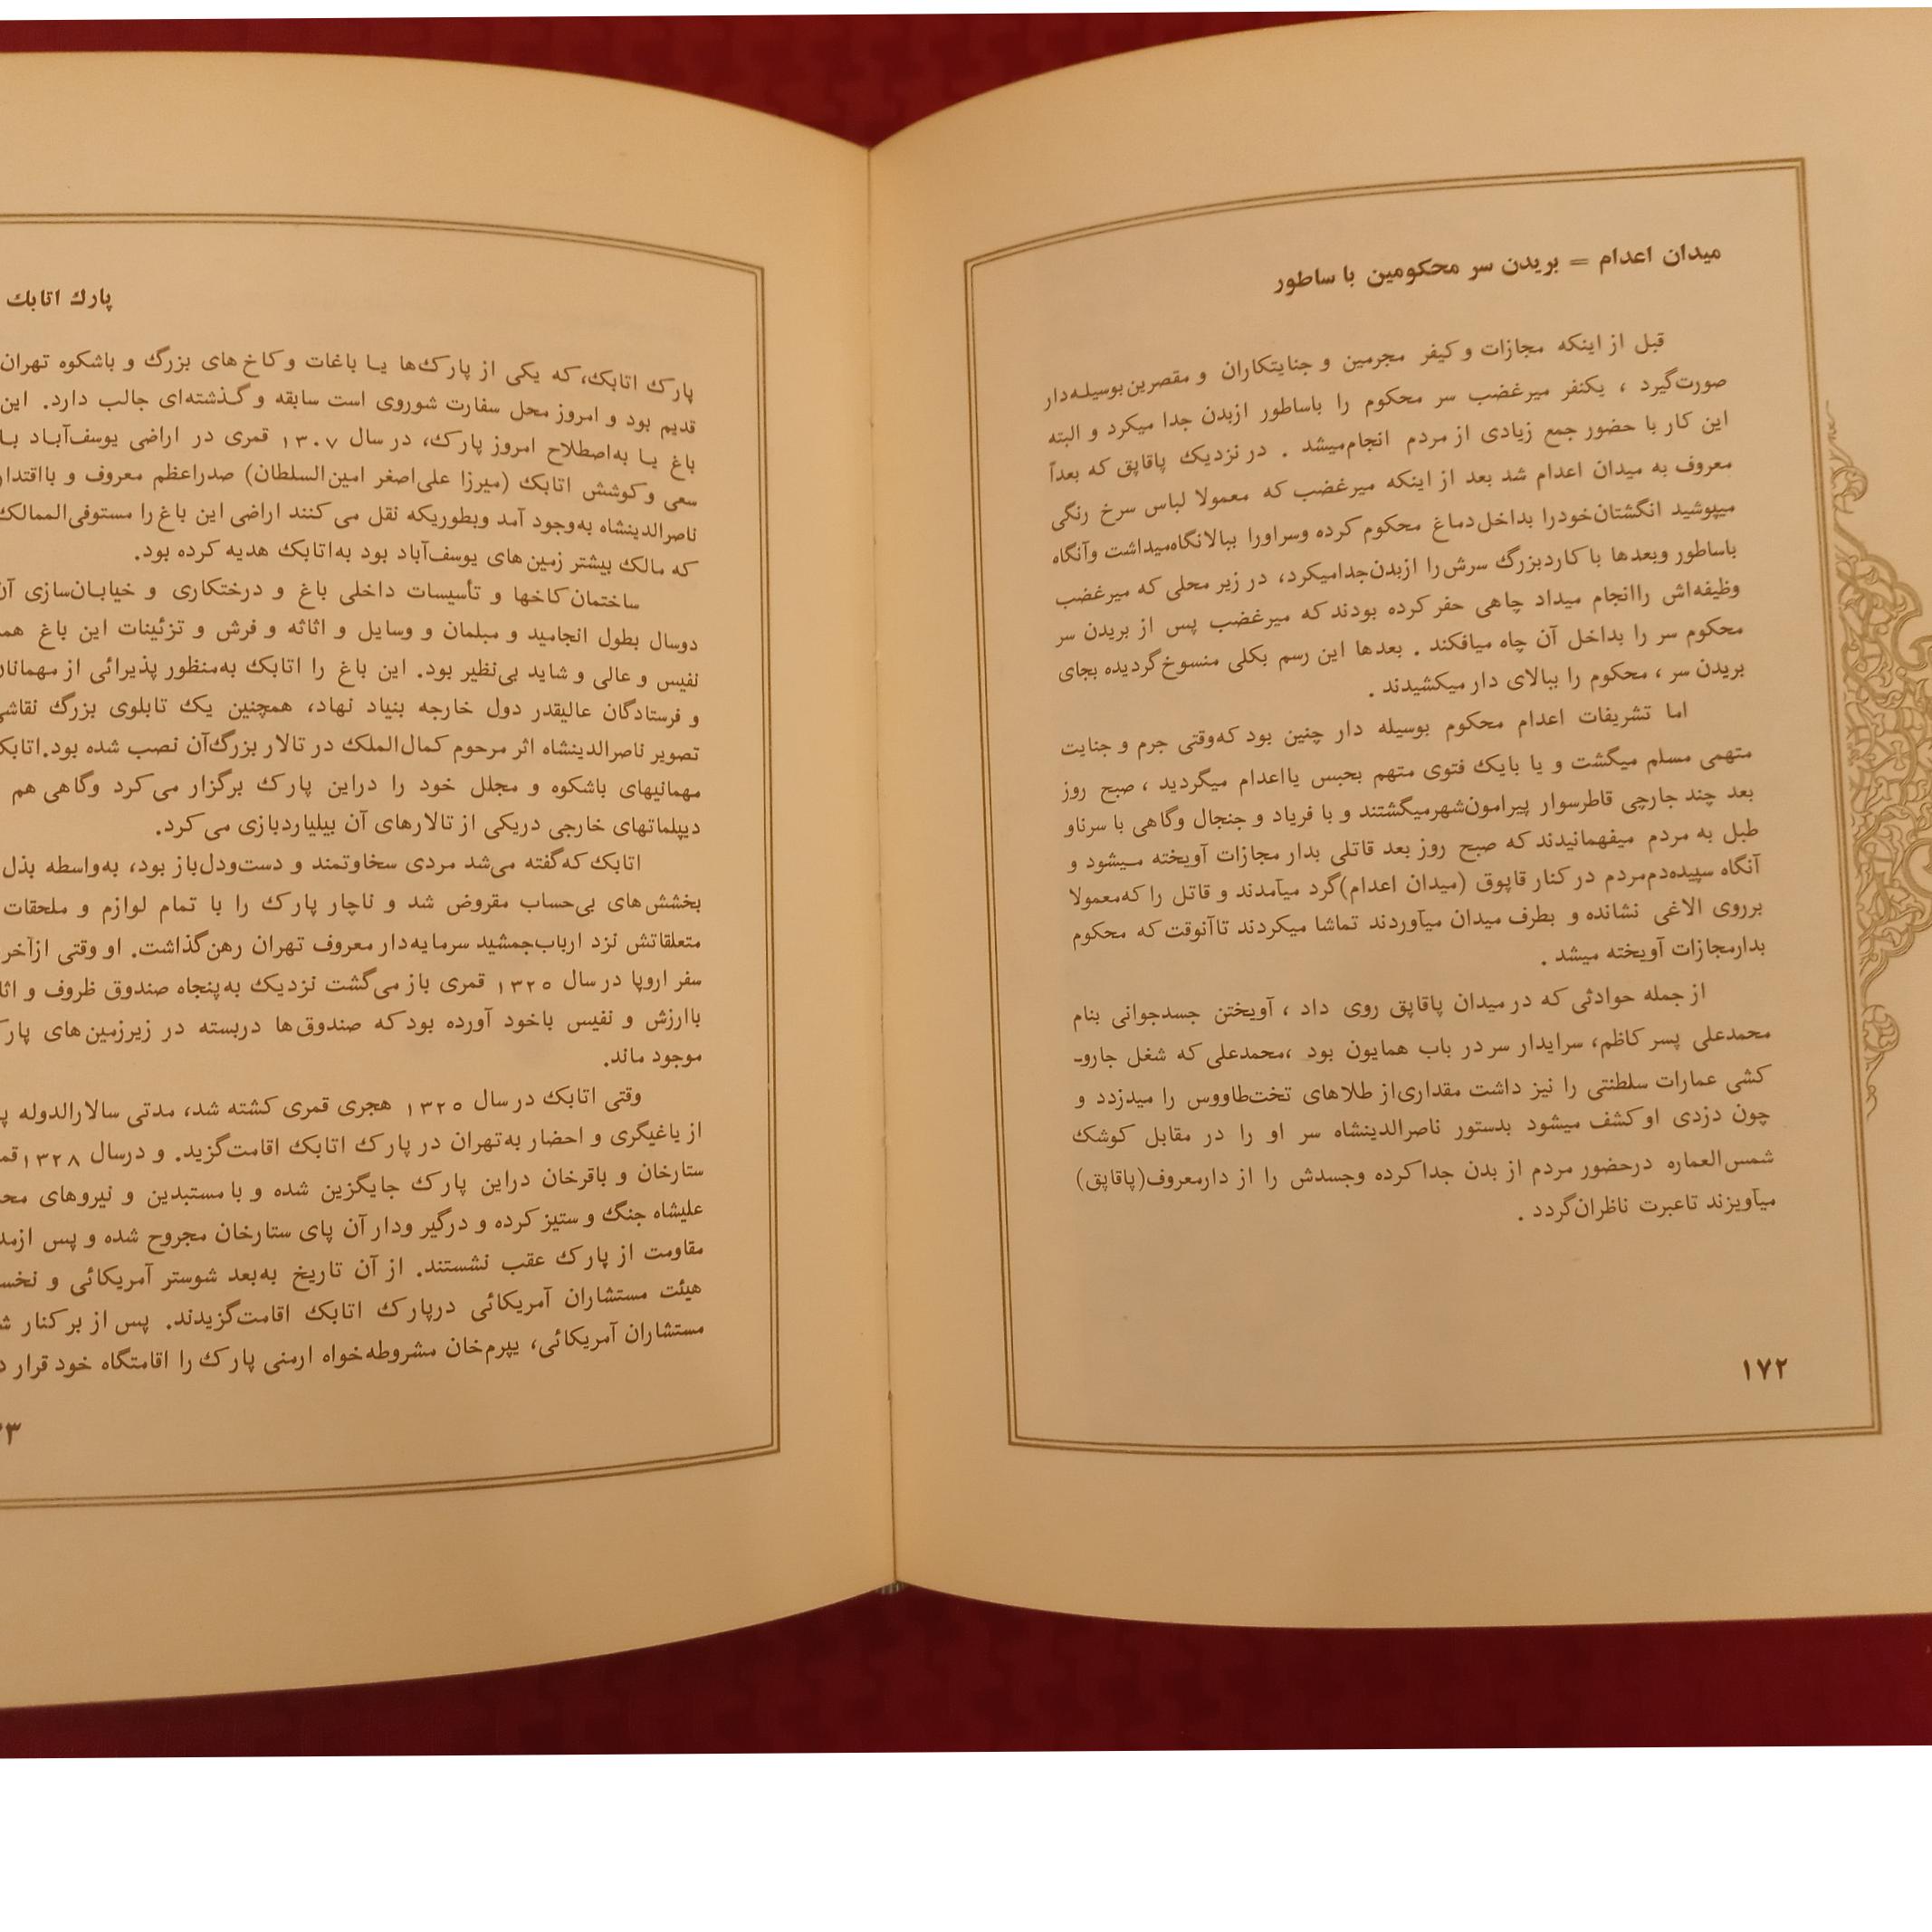 میدان اعدام = بریدن سر محکومین با ساطور
قبل از اینکه مجازات و کیفر مجرمین و جنایتکاران و مقصرین بوسیله دار
صورت‌گیرد ، یکنفر میرغضب سر محکوم را باساطور ازبدن جدا میکرد و البته
این کار با حضور جمع زیادی از مردم انجام‌میشد . در نزدیک پاقاپق که بعداً
معروف به میدان اعدام شد بعد از اینکه میرغضب که معمولا لباس سرخ رنگی
میپوشید انگشتان‌خودرا بداخل‌دماغ محکوم کرده وسراورا ببالانگاه‌میداشت وآنگاه
باساطور وبعدها با کاردبزرگ سرش‌را ازبدن‌جدامیکرد، در زیر محلی که میرغضب
وظیفه‌اش راانجام میداد چاهی حفر کرده بودند که میرغضب پس از بریدن سر
محکوم سر را بداخل آن چاه میافکند . بعدها این رسم بکلی منسوخ‌گردیده بجای
بریدن سر ، محکوم را ببالای دار میکشیدند .
اما تشریفات اعدام محکوم بوسیله دار چنین بود که‌وقتی جرم و جنایت
متهمی مسلم میگشت و یا بایک فتوی متهم بحبس یااعدام میگردید ، صبح روز
بعد چند جارچی قاطرسوار پیرامون‌شهرمیگشتند و با فریاد و جنجال وگاهی با سرناو
طبل به مردم میفهمانیدند که صبح روز بعد قاتلی بدار مجازات آویخته میشود و
آنگاه سپیده‌دم‌مردم در کنار قاپوق (میدان اعدام)گرد میآمدند و قاتل را که‌معمولا
برروی الاغی نشانده و بطرف میدان میآوردند تماشا میکردند تاآنوقت که محکوم
بدارمجازات آویخته میشد .
از جمله حوادثی که در میدان پاقاپق روی داد ، آویختن جسدجوانی بنام
محمدعلی پسر کاظم، سرایدار سر در باب همایون بود ،محمدعلی که شغل جارو-
کشی عمارات سلطنتی را نیز داشت مقداری‌از طلاهای تخت‌طاووس را میدزدد و
چون دزدی او کشف میشود بدستور ناصرالدینشاه سر او را در مقابل کوشک
شمس‌العماره درحضور مردم از بدن جدا کرده وجسدش را از دارمعروف(پاقاپق)
میآویزند تاعبرت ناظران‌گردد .
۱۷۲
پارک اتابک
پارک اتابک، که یکی از پارک‌ها یا باغات و کاخ‌های بزرگ و باشکوه تهران
قدیم بود و امروز محل سفارت شوروی است سابقه و گذشته‌ای جالب دارد. این
باغ یا به‌اصطلاح امروز پارک، در سال ۱۳۰۷ قمری در اراضی یوسف‌آباد با
سعی و کوشش اتابک (میرزا علی‌اصغر امین‌السلطان) صدراعظم معروف و بااقتدار
ناصرالدینشاه به‌وجود آمد وبطوریکه نقل می‌کنند اراضی این باغ را مستوفی‌الممالک
که مالک بیشتر زمین‌های یوسف‌آباد بود به‌اتابک هدیه کرده بود.
ساختمان کاخها و تأسیسات داخلی باغ و درختکاری و خیابان‌سازی آن
دوسال بطول انجامید و مبلمان و وسایل و اثاثه و فرش و تزئینات این باغ
نفیس و عالی و شاید بی‌نظیر بود. این باغ را اتابک به‌منظور پذیرائی از مهمانان
و فرستادگان عالیقدر دول خارجه بنیاد نهاد، همچنین یک تابلوی بزرگ نقاشی
تصویر ناصرالدینشاه اثر مرحوم کمال‌الملک در تالار بزرگ‌آن نصب شده بود.اتابک
مهمانیهای باشکوه و مجلل خود را دراین پارک برگزار می‌کرد وگاهی هم
دیپلماتهای خارجی دریکی از تالارهای آن بیلیاردبازی می‌کرد.
اتابک که‌گفته می‌شد مردی سخاوتمند و دست‌ودل‌باز بود، به‌واسطه بذل
بخشش‌های بی‌حساب مقروض شد و ناچار پارک را با تمام لوازم و ملحقات
متعلقاتش نزد ارباب‌جمشید سرمایه‌دار معروف تهران رهن‌گذاشت. او وقتی ازآخر
سفر اروپا در سال ۱۳۲۵ قمری باز می‌گشت نزدیک به‌پنجاه صندوق ظروف و
باارزش و نفیس باخود آورده بود که صندوق‌ها دربسته در زیرزمین‌های
موجود ماند.
وقتی اتابک در سال ۱۳۲۵ هجری قمری کشته شد، مدتی سالارالدوله
از یاغیگری و احضار به‌تهران در پارک اتابک اقامت‌گزید. و درسال ۱۳۲۸
ستارخان و باقرخان دراین پارک جایگزین شده و با مستبدین و نیروهای
علیشاه جنگ و ستیز کرده و درگیر ودار آن پای ستارخان مجروح شده و پس
مقاومت از پارک عقب نشستند. از آن تاریخ به‌بعد شوستر آمریکائی و
هیئت مستشاران آمریکائی درپارک اتابک اقامت‌گزیدند. پس از برکنار
مستشاران آمریکائی، یپرم‌خان مشروطه‌خواه ارمنی پارک را اقامتگاه خود قرار